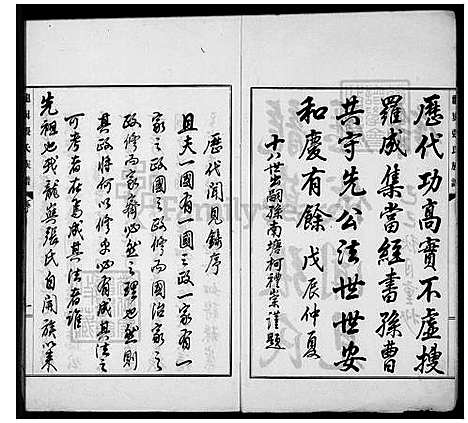 歷代功高實不虛搜
羅成集當經書孫曹
共守先公法世世安
和慶有餘 戊辰仲夏
十八世出嗣孫南塘柯禮崇謹題
歷代聞見錄序
且夫一國有一國之政一家有一
家之政國之政修而國治家之
政修而家齊必然之理也然則
其政將何以修乎必有成其法之
可考者在焉成其法者誰
先祖也我龍興張氏自開族以來